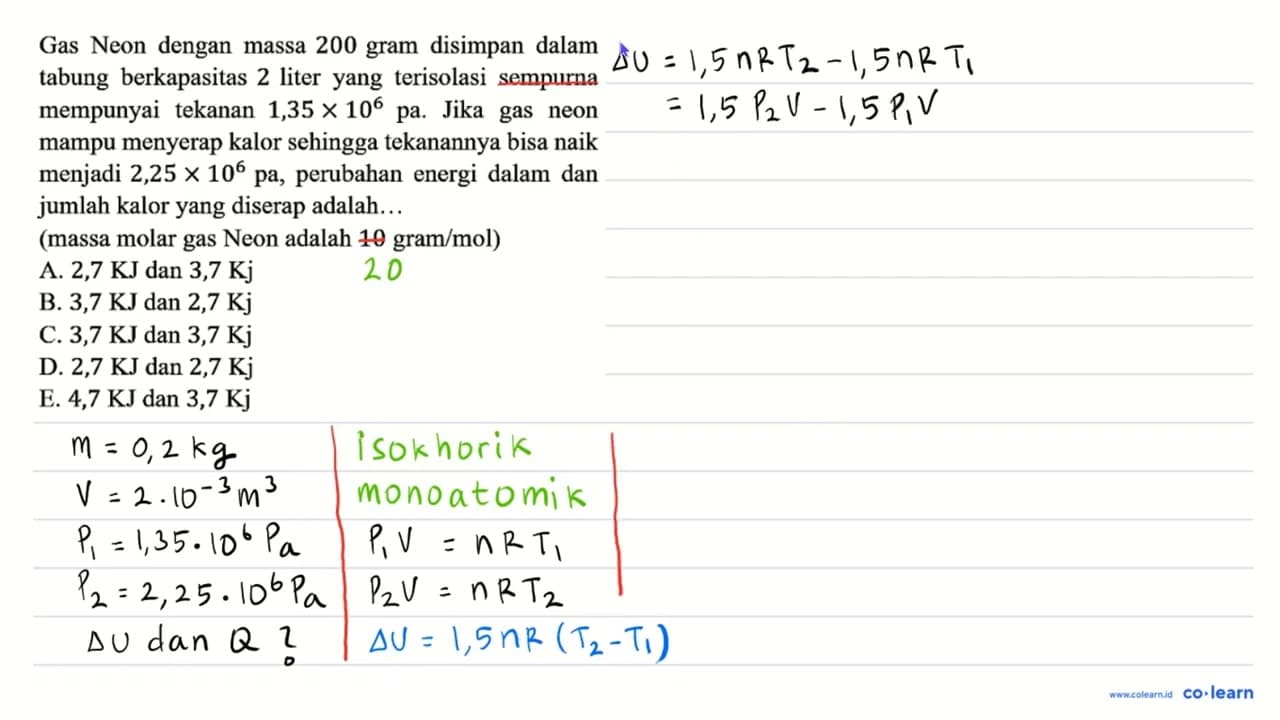 Gas Neon dengan massa 200 gram disimpan dalam
tabung berkapasitas 2 liter yang terisolasi sempurna
mempunyai tekanan 1,35 × 10⁶ pa. Jika gas neon
mampu menyerap kalor sehingga tekanannya bisa naik
menjadi 2,25 × 10⁶ pa, perubahan energi dalam dan
jumlah kalor yang diserap adalah…
(massa molar gas Neon adalah 10 gram/mol)
20
A. 2,7 KJ dan 3,7 Kj
B. 3,7 KJ dan 2,7 Kj
C. 3,7 KJ dan 3,7 Kj
D. 2,7 KJ dan 2,7 Kj
E. 4,7 KJ dan 3,7 Kj
ΔU = 1,5 nRT₂ − 1,5 nRT₁
= 1,5 P₂V − 1,5 P₁V
m = 0,2 kg
V = 2 . 10⁻³ m³
P₁ = 1,35 . 10⁶ Pa
P₂ = 2,25 . 10⁶ Pa
ΔU dan Q ?
isokhorik
monoatomik
P₁V = nRT₁
P₂V = nRT₂
ΔU = 1,5 nR (T₂ − T₁)
www.colearn.id co·learn